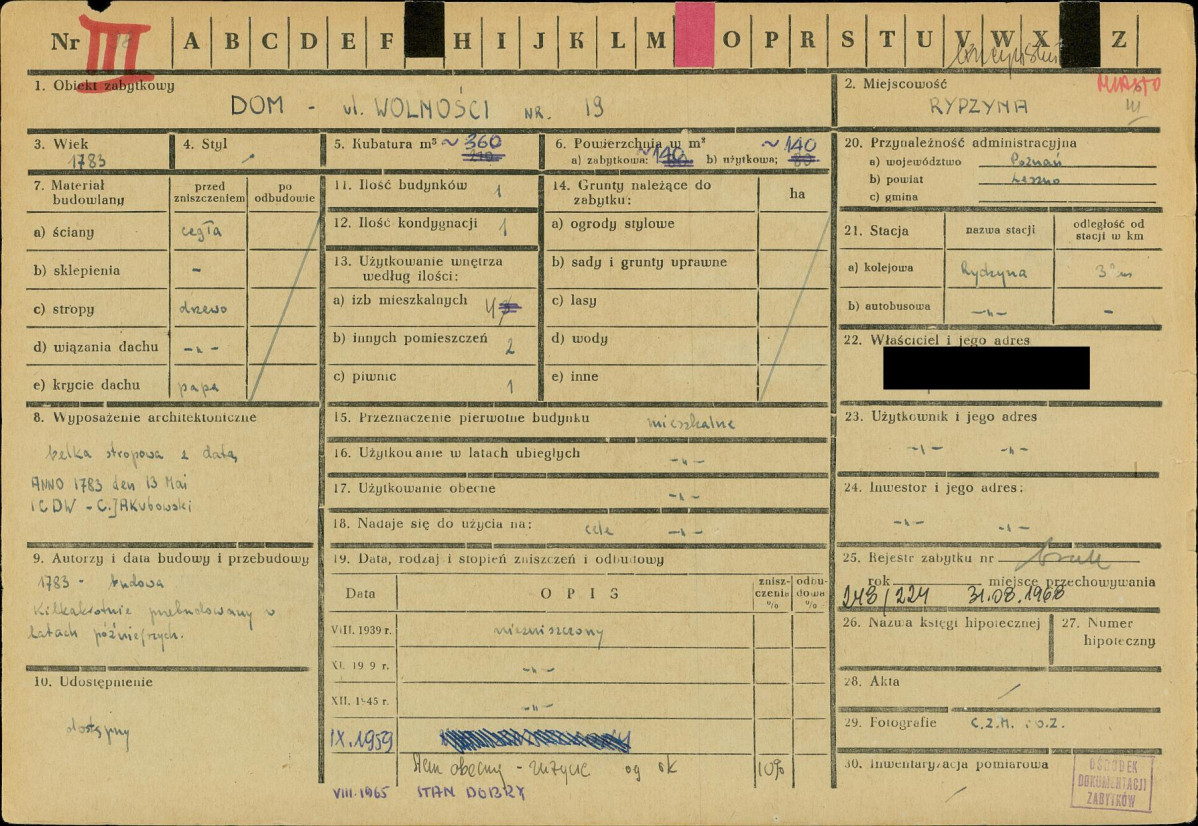 Nr III A B C D E F H I J K L M O P R S T U V W X Z
1. Obiekt zabytkowy
DOM - ul. WOLNOŚCI NR. 19
2. Miejscowość
MIASTO
RYDZYNA
3. Wiek
1783
4. Styl
5. Kubatura m³ ~ 360
6. Powierzchnia w m²
a) zabytkowa: ~140 b) użytkowa: ~140
7. Materiał budowlany
przed zniszczeniem
po odbudowie
a) ściany cegła
b) sklepienia -
c) stropy drzewo
d) wiązania dachu -"-
e) krycie dachu papa
8. Wyposażenie architektoniczne
belka stropowa z datą
ANNO 1783 den 13 Mai
ICDW - C. JAkubowski
9. Autorzy i data budowy i przebudowy
1783 - budowa
Kilkakrotnie przebudowany w
latach późniejszych.
10. Udostępnienie
dostępny
11. Ilość budynków 1
12. Ilość kondygnacji 1
13. Użytkowanie wnętrza
według ilości:
a) izb mieszkalnych 4
b) innych pomieszczeń 2
c) piwnic 1
14. Grunty należące do
zabytku:
ha
a) ogrody stylowe
b) sady i grunty uprawne
c) lasy
d) wody
e) inne
15. Przeznaczenie pierwotne budynku mieszkalne
16. Użytkowanie w latach ubiegłych -"-
17. Użytkowanie obecne -"-
18. Nadaje się do użycia na: cele -"-
19. Data, rodzaj i stopień zniszczeń i odbudowy
Data
OPIS
znisz-
czenia
%
odbu-
dowa
%
VIII. 1939 r. niezniszczony
XI. 19 9 r. -"-
XII. 1945 r. -"-
IX.1959
Stan obecny - zużycie ok 10%
VIII.1965 STAN DOBRY
20. Przynależność administracyjna
a) województwo Poznań
b) powiat Leszno
c) gmina
21. Stacja
nazwa stacji
odległość od
stacji w km
a) kolejowa Rydzyna 3 km
b) autobusowa -"- -
22. Właściciel i jego adres
23. Użytkownik i jego adres
-"- -"-
24. Inwestor i jego adres:
-"- -"-
25. Rejestr zabytku nr brak
rok miejsce przechowywania
248/224 31.08.1968
26. Nazwa księgi hipotecznej
27. Numer
hipoteczny
28. Akta
29. Fotografie C.Z.M. i O.Z.
30. Inwentaryzacja pomiarowa
OŚRODEK
DOKUMENTACJI
ZABYTKÓW